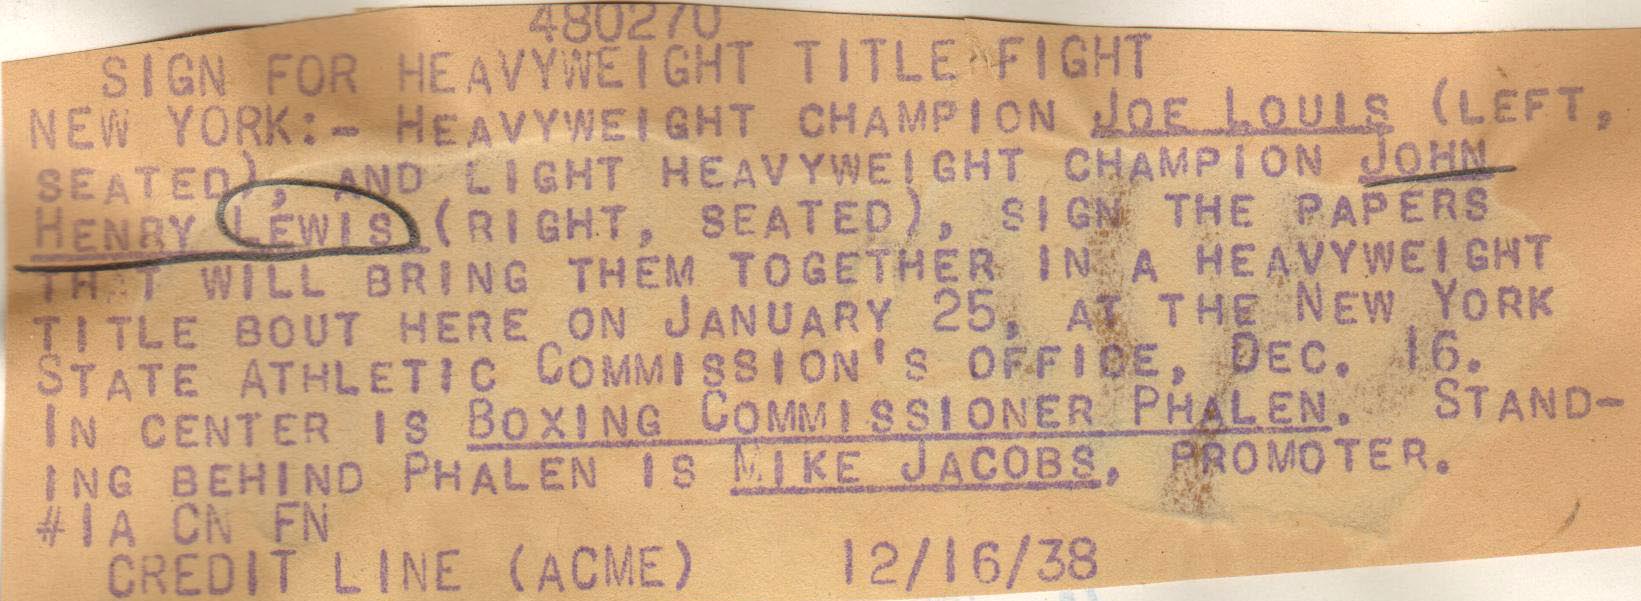 480270
SIGN FOR HEAVYWEIGHT TITLE FIGHT
NEW YORK:- HEAVYWEIGHT CHAMPION JOE LOUIS (LEFT,
SEATED), AND LIGHT HEAVYWEIGHT CHAMPION JOHN
HENRY LEWIS (RIGHT, SEATED), SIGN THE PAPERS
THAT WILL BRING THEM TOGETHER IN A HEAVYWEIGHT
TITLE BOUT HERE ON JANUARY 25, AT THE NEW YORK
STATE ATHLETIC COMMISSION'S OFFICE, DEC. 16.
IN CENTER IS BOXING COMMISSIONER PHALEN. STAND-
ING BEHIND PHALEN IS MIKE JACOBS, PROMOTER.
#1A CN FN
CREDIT LINE (ACME) 12/16/38